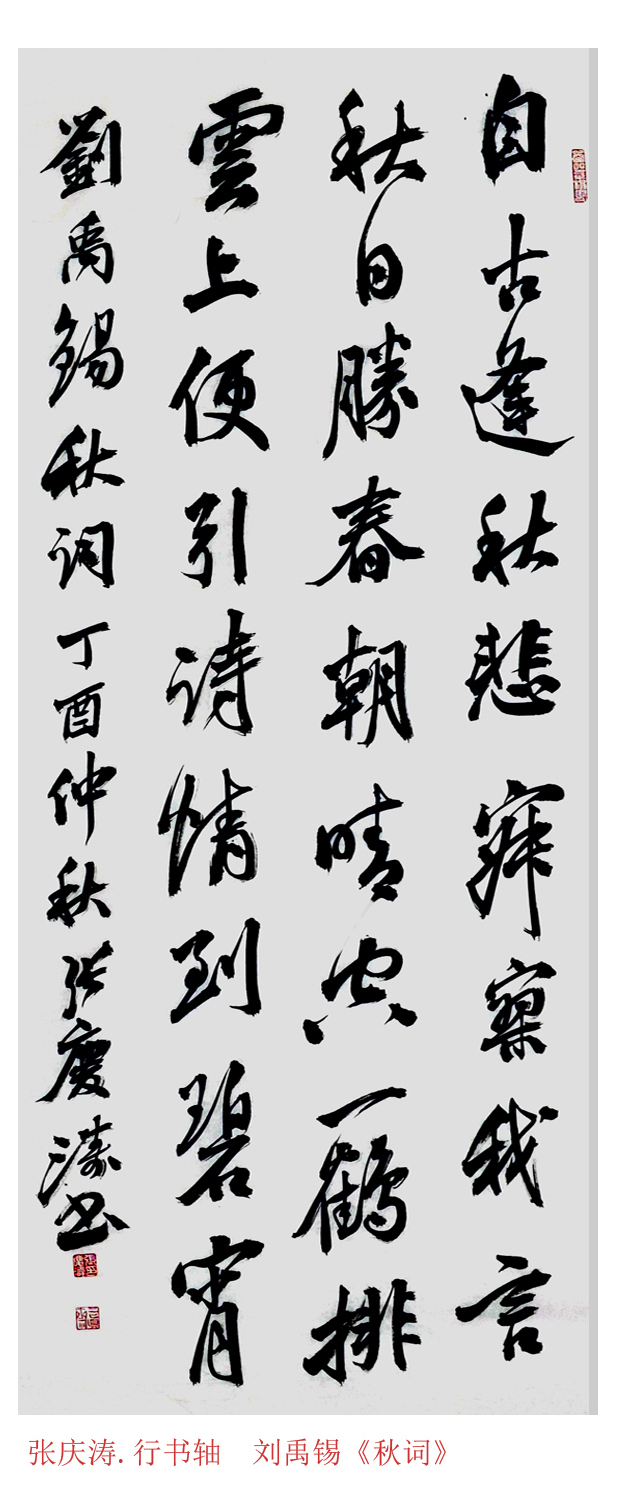 自古逢秋悲寂寥我言
秋日勝春朝晴空一鶴排
雲上便引诗情到碧宵
劉禹錫秋词丁酉仲秋张慶濤书
张庆涛.行书轴 刘禹锡《秋词》